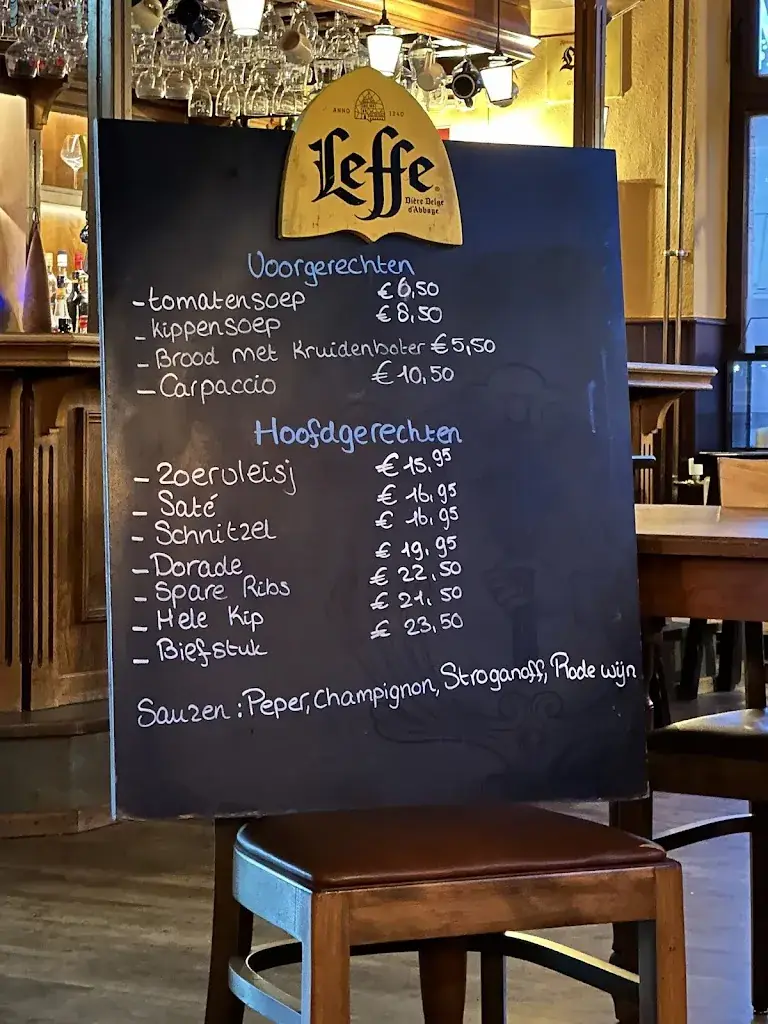 ANNO 1240
Leffe
Bière Belge
d'Abbaye
Voorgerechten
- tomatensoep € 6,50
- kippensoep € 8,50
- Brood met kruidenboter € 5,50
- Carpaccio € 10,50
Hoofdgerechten
- Zoervleisj € 15,95
- Saté € 16,95
- Schnitzel € 16,95
- Dorade € 19,95
- Spare Ribs € 22,50
- Hele Kip € 21,50
- Biefstuk € 23,50
Sauzen : Peper, Champignon, Stroganoff, Rode wijn